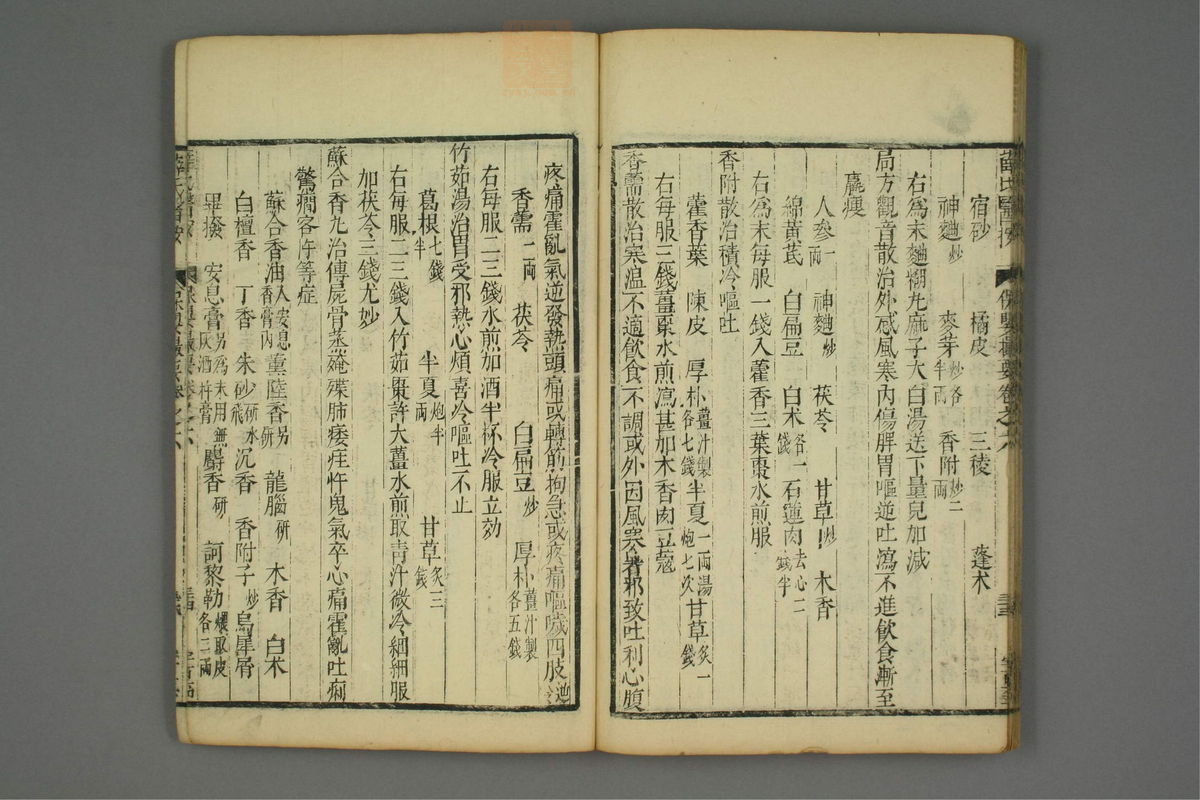 宿砂 橘皮 三稜 蓬术
神麯炒 麥芽炒各半兩 香附炒二兩
右爲末麯糊丸麻子大白湯送下量兒加減
局方觀音散治外感風寒內傷脾胃嘔逆吐瀉不進飲食漸至
羸瘦
人參一兩 神麯炒 茯苓 甘草炒 木香
綿黃芪 白扁豆 白术各一錢 石蓮肉去心二錢半
右爲末每服一錢入藿香三葉棗水煎服
香附散治積冷嘔吐
藿香葉 陳皮 厚朴薑汁製各七錢 半夏一兩湯炮七次 甘草炙一錢
右每服三錢薑棗水煎瀉甚加木香肉豆蔻
香薷散治寒温不適飲食不調或外因風寒暑邪致吐利心腹
疼痛霍亂氣逆發熱頭痛或轉筋拘急或疼痛嘔噦四肢逆冷
香薷二兩 茯苓 白扁豆炒 厚朴薑汁製各五錢
右每服二三錢水煎加酒半杯冷服立効
竹茹湯治胃受邪熱心煩喜冷嘔吐不止
葛根七錢半 半夏炮半兩 甘草炙三錢
右每服二三錢入竹茹棗許大薑水煎取清汁微冷細細服
加茯苓三錢尤妙
蘇合香丸治傳屍骨蒸殗殜肺痿疰忤鬼氣卒心痛霍亂吐痢
驚癎客忤等症
蘇合香油入安息香膏內 薰陸香另研 龍腦研 木香 白术
白檀香 丁香 朱砂少研水飛 沉香 香附子炒 烏犀屑
畢撥 安息膏另爲末用無灰酒幷膏 麝香研 訶黎勒煨取皮各二兩